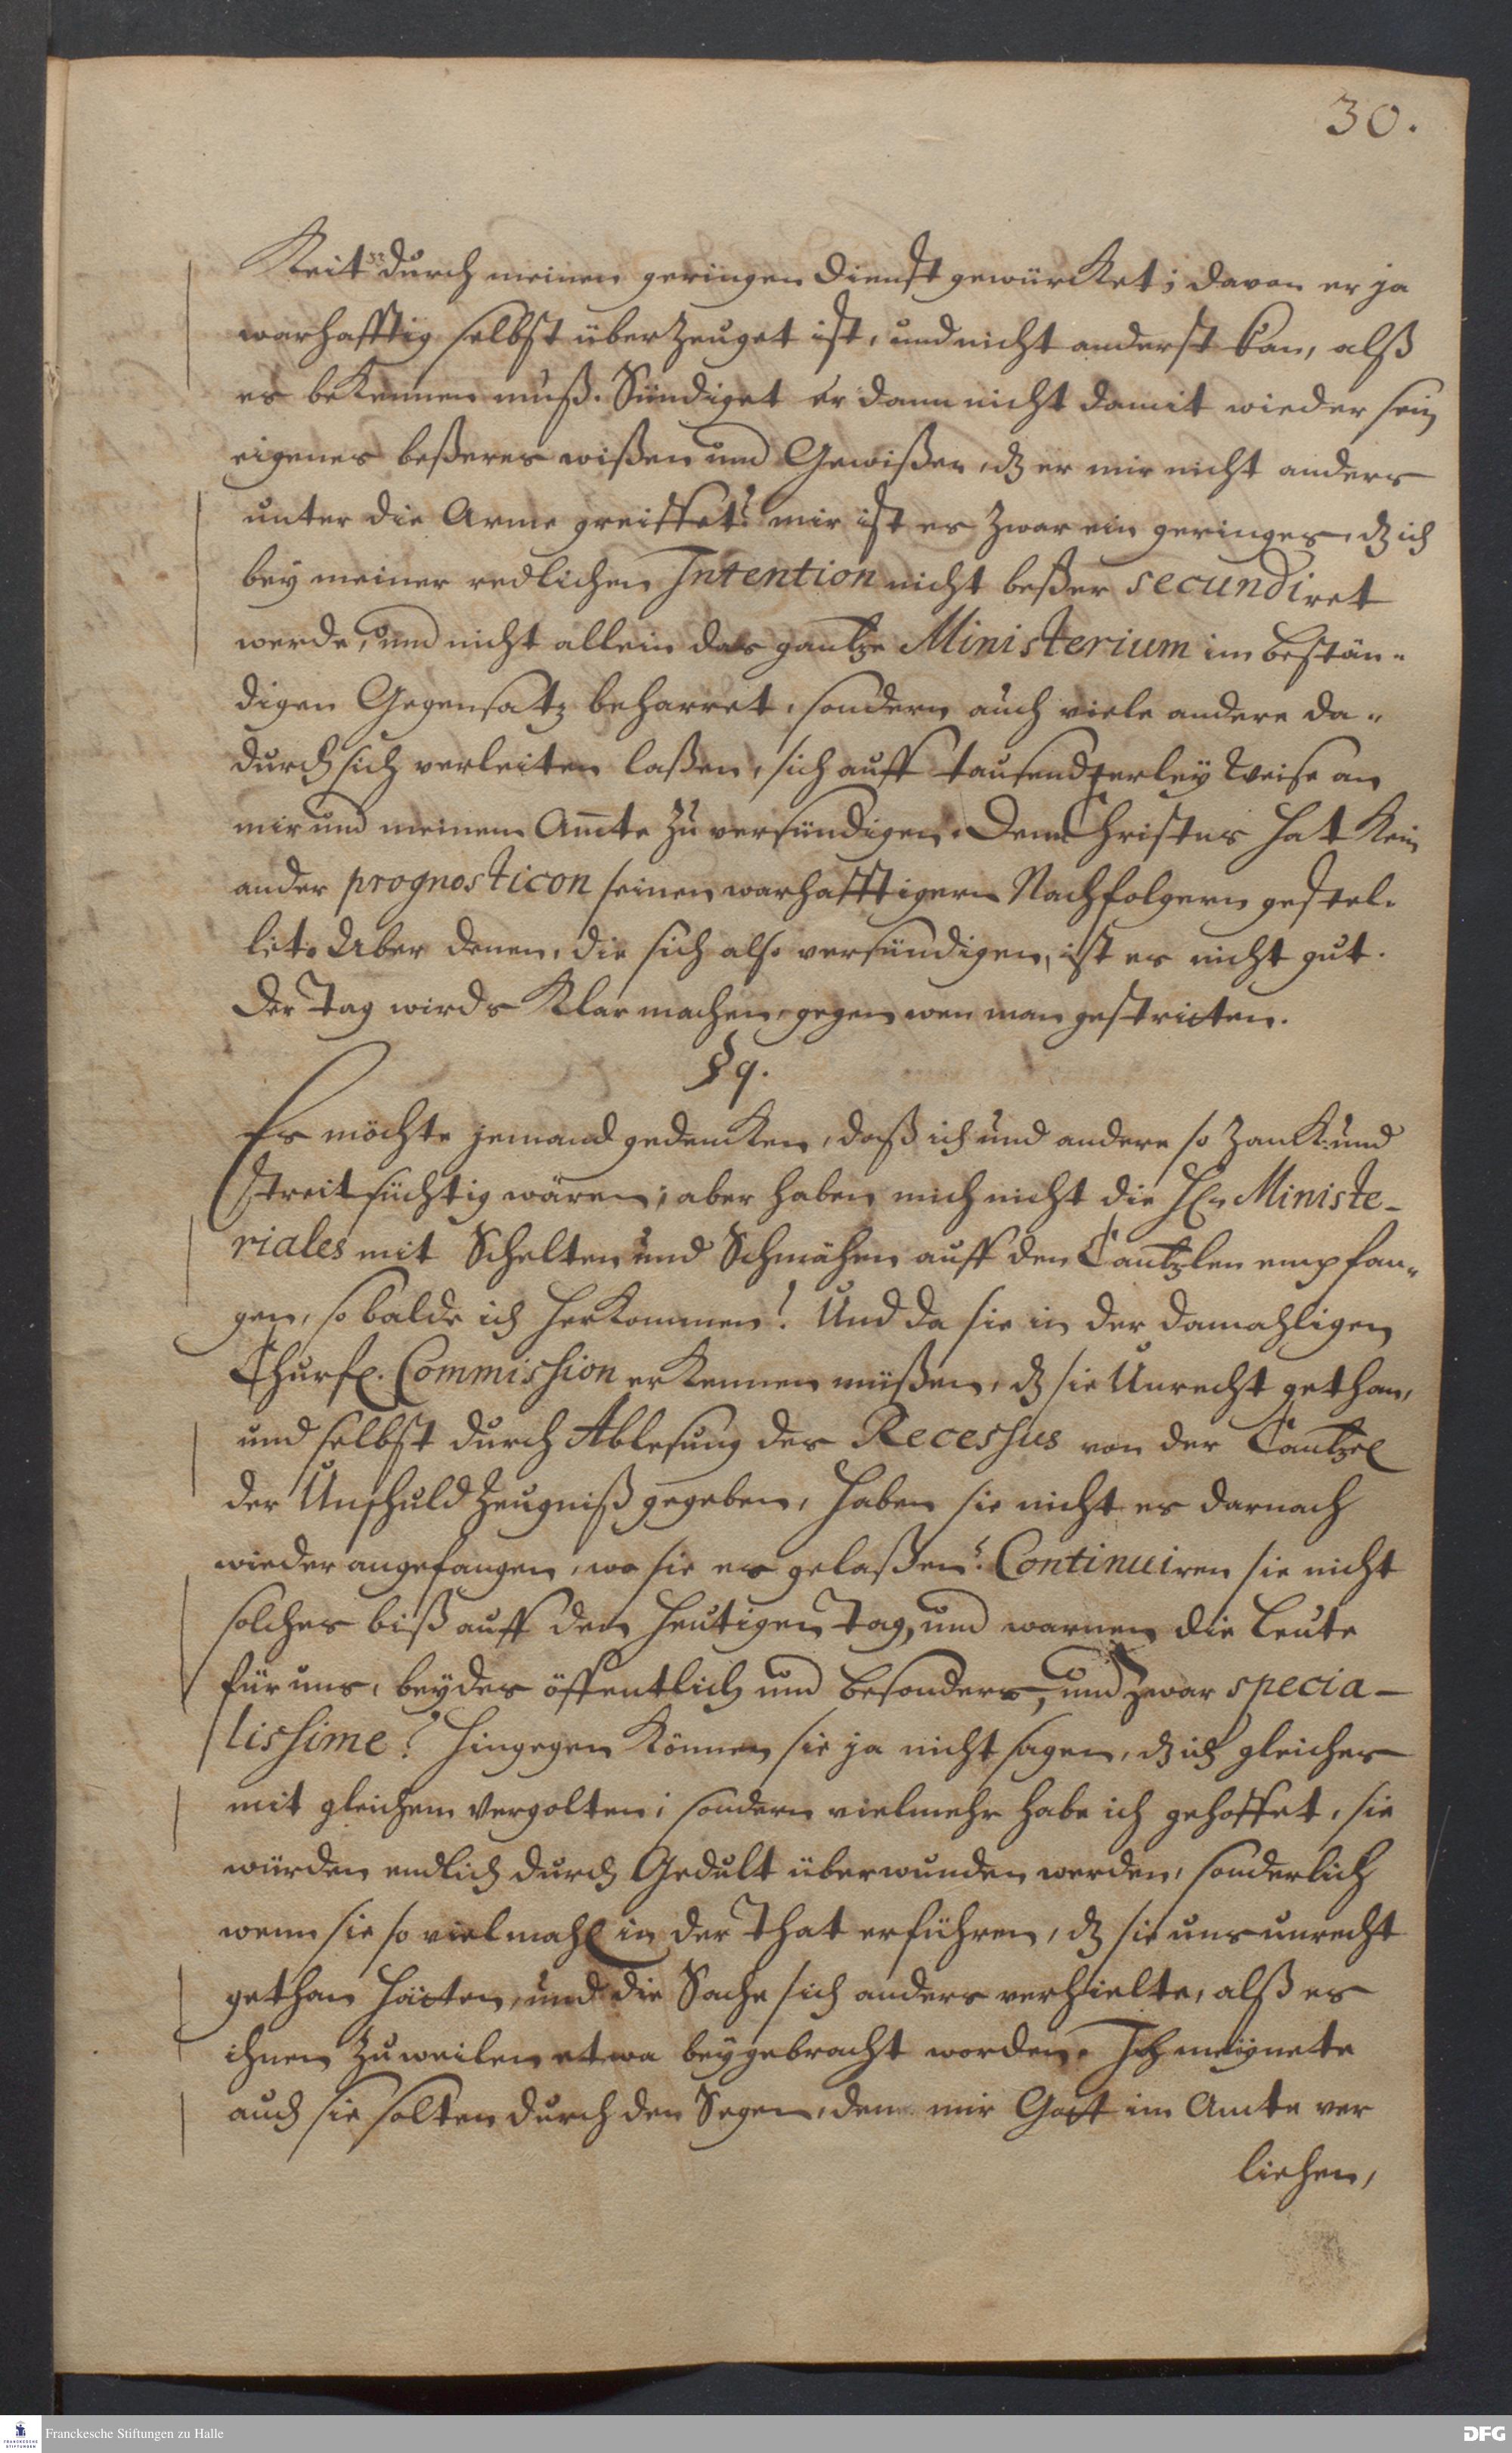 30.
Keit durch meinen geringen Dienst gewürcket; davon er ja
warhafftig selbst überzeuget ist, und nicht anderst kan, alß
es bekennen muß. Sündiget er dann nicht damit wieder sein
eigenes beßeres wißen und Gewißen, dz er mir nicht anders
unter die Arme greiffet? mir ist es zwar ein geringes, dz ich
bey meiner redlichen Intention nicht beßer secundiret
werde, und nicht allein das gantze Ministerium im bestän-
digen Gegensatz beharret, sondern auch viele andere da-
durch sich verleiten laßen, sich auff tausenderley Weise an
mir und meinem Ammte zu versündigen. Denn Christus hat kein
ander prognosticon seinen warhafftigern Nachfolgern gestel-
let. Aber denen, die sich also versündigen, ist es nicht gut.
Der Tag wirds klar machen, gegen wen man gestritten.
§ 9.
Es möchte jemand gedencken, daß ich und andere so zanck- und
streitsüchtig wären; aber haben mich nicht die Hn Ministe-
riales mit Schelten und Schmähen auff den Cantzlen empfan-
gen, so balde ich herkommen? Und da sie in der damahligen
Churfl. Commission erkennen müßen, dz sie Unrecht gethan,
und selbst durch Ablesung des Recessus von der Cantzel
der Unschuld Zeugniß gegeben, haben sie nicht es darnach
wieder angefangen, wo sie es gelaßen? Continuiren sie nicht
solches biß auff den heutigen Tag, und warnen die Leute
für uns, beydes öffentlich und besonders, und zwar specia-
lissime? Hingegen können sie ja nicht sagen, dz ich gleiches
mit gleichem vergolten; sondern vielmehr habe ich gehoffet, sie
würden endlich durch Gedult überwunden werden, sonderlich
wenn sie so vielmahl in der That erführen, dz sie uns unrecht
gethan hätten, und die Sache sich anders verhielte, alß es
ihnen zuweilen etwa beygebracht worden. Ich meynete
auch sie solten durch den Segen, den mir Gott im Amte ver
liehen,
Franckesche Stiftungen zu Halle
DFG